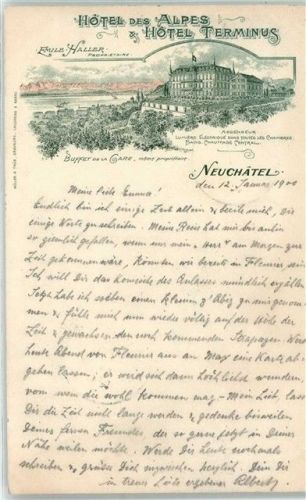 HÔTEL DES ALPES
& HÔTEL TERMINUS
EMILE HALLER
PROPRIÉTAIRE.
ASCENSEUR
LUMIÈRE ÉLECTRIQUE DANS TOUTES LES CHAMBRES
BAINS. CHAUFFAGE CENTRAL.
BUFFET DE LA GARE, même propriétaire
NEUCHÂTEL,
den 12. Januar 1900
Meine liebe Emma!
Endlich bin ich einige Zeit allein & beeile mich, Dir
einige Worte zu schreiben. Meine Reise hat mir bis anhin
so ziemlich gefallen, wenn nur mein Herr am Morgen zur
Zeit gekommen wäre, könnten wir bereits in Fleurier sein.
Ich will Dir das Komische des Anlasses mündlich erzählen.
Jetzt habe ich soeben einen kleinen z'Abig zu mir genom-
men & fühle mich nun wieder völlig auf der Höhe der
Zeit & gewachsen den noch kommenden Strapazen. Werd
heute Abend von Fleurier aus an Max eine Karte ab-
gehen lassen; er wird sich dann höchlichst wundern
von wem die wohl kommen mag. - Mein Lieb, lass
Dir die Zeit nicht lange werden & gedenke bisweilen
Deines fernen Freundes der so gerne jetzt in Deiner
Nähe weilen möchte. Werde Dir heute nochmals
schreiben & grüsse Dich inzwischen herzlich. Dein Dir
in treuer Liebe ergebener Albert.